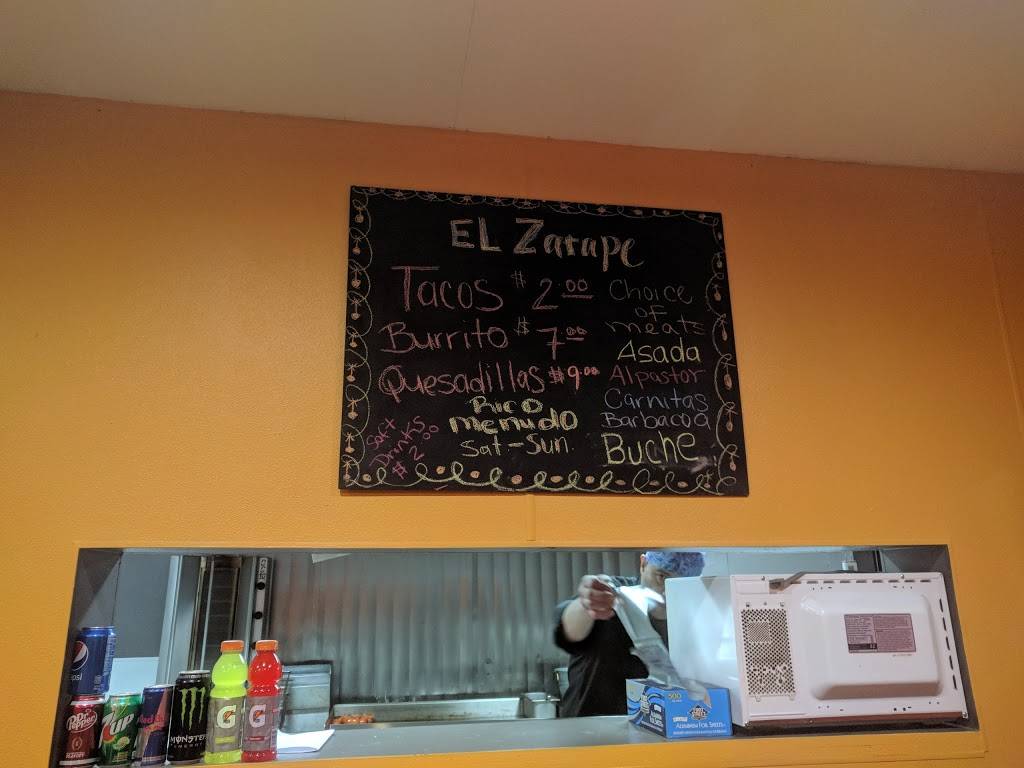 EL Zarape
Tacos $2.00
Burrito $7.00
Quesadillas $9.00
Rico
menudo
Sat-Sun.
Soft
Drinks
$2.00
Choice
of
meats
Asada
Alpastor
Carnitas
Barbacoa
Buche
pepsi
Dr Pepper
7up
Red Bull
MONSTER
ENERGY
G
G
500
Aluminum Foil Sheets